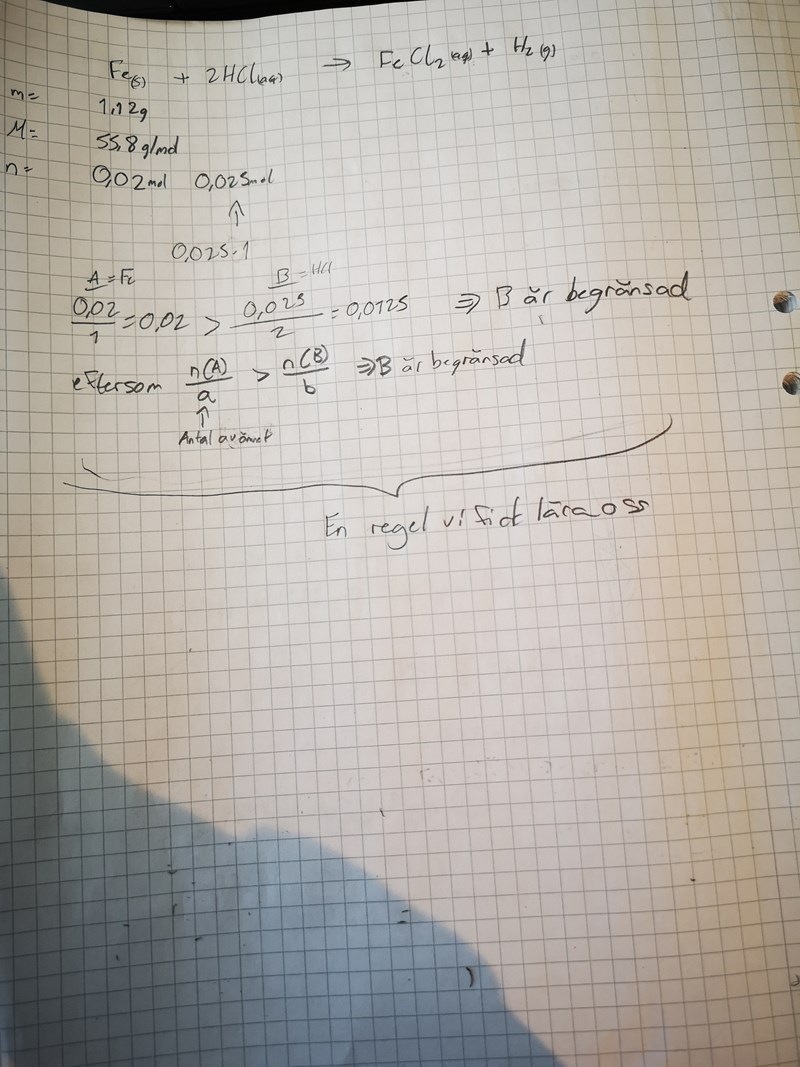 Fe(s) + 2HCl(aq) → FeCl2(aq) + H2(g)
m= 1,12g
M= 55,8g/mol
n= 0,02mol 0,025mol
↑
0,025·1
A=Fe B=HCl
0,02/1=0,02 > 0,025/2=0,0125 ⇒ B är begränsad
eftersom n(A)/a > n(B)/b ⇒ B är begränsad
↑
Antal av ämnet
En regel vi fick lära oss